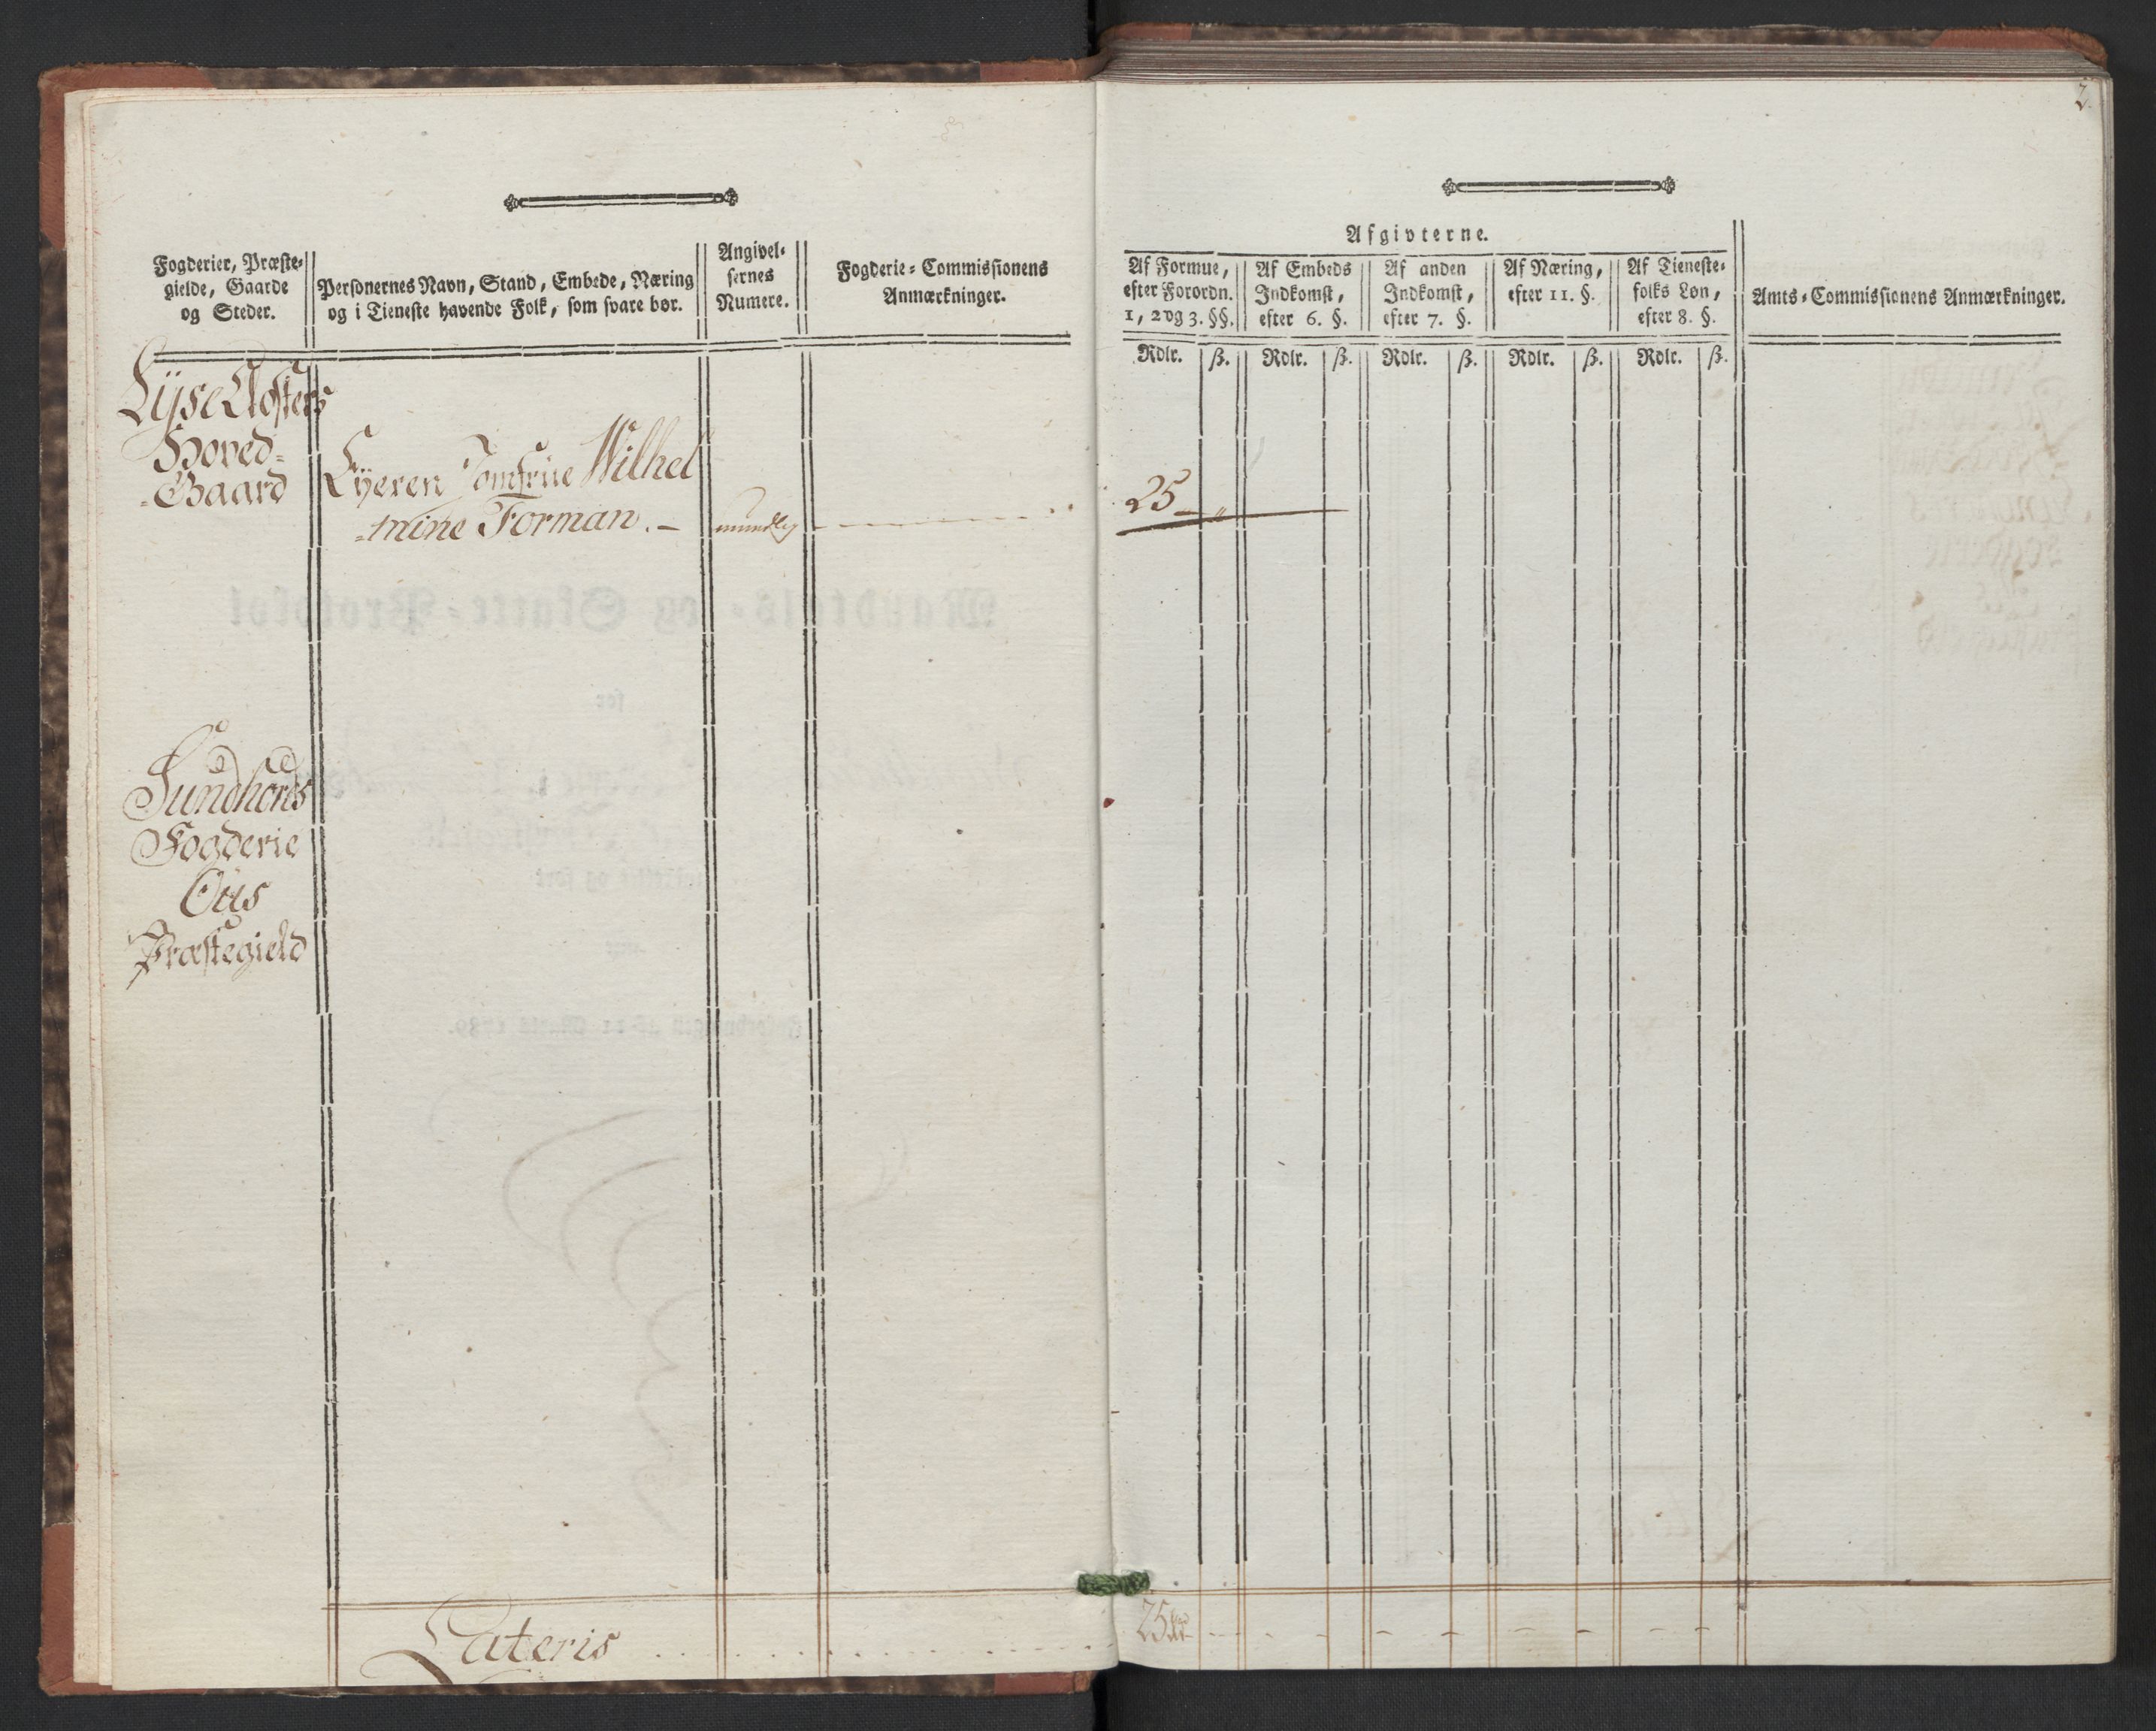 2.
Fogderier, Præste-
gielde, Gaarde
og Steder.
Personernes Navn, Stand, Embede, Næring
og i Tieneste havende Folk, som svare bør.
Angivel-
sernes
Numere.
Fogderie-Commissionens
Anmærkninger.
Afgivterne.
Af Formue,
efter Forordn.
1, 2 og 3. §§.
Af Embeds
Indkomst,
efter 6. §.
Af anden
Indkomst,
efter 7. §.
Af Næring,
efter 11. §.
Af Tieneste-
folks Løn,
efter 8. §.
Amts-Commissionens Anmærkninger.
Rdlr. ß. Rdlr. ß. Rdlr. ß. Rdlr. ß. Rdlr. ß.
Lyse Closters
Hoved-
-Gaard
Eyeren Jomfrue Wilhel
-mine Forman. -
mundtlg
25 - "
Sundhords
Fogderie
Ous
Præstegield
Lateris
25